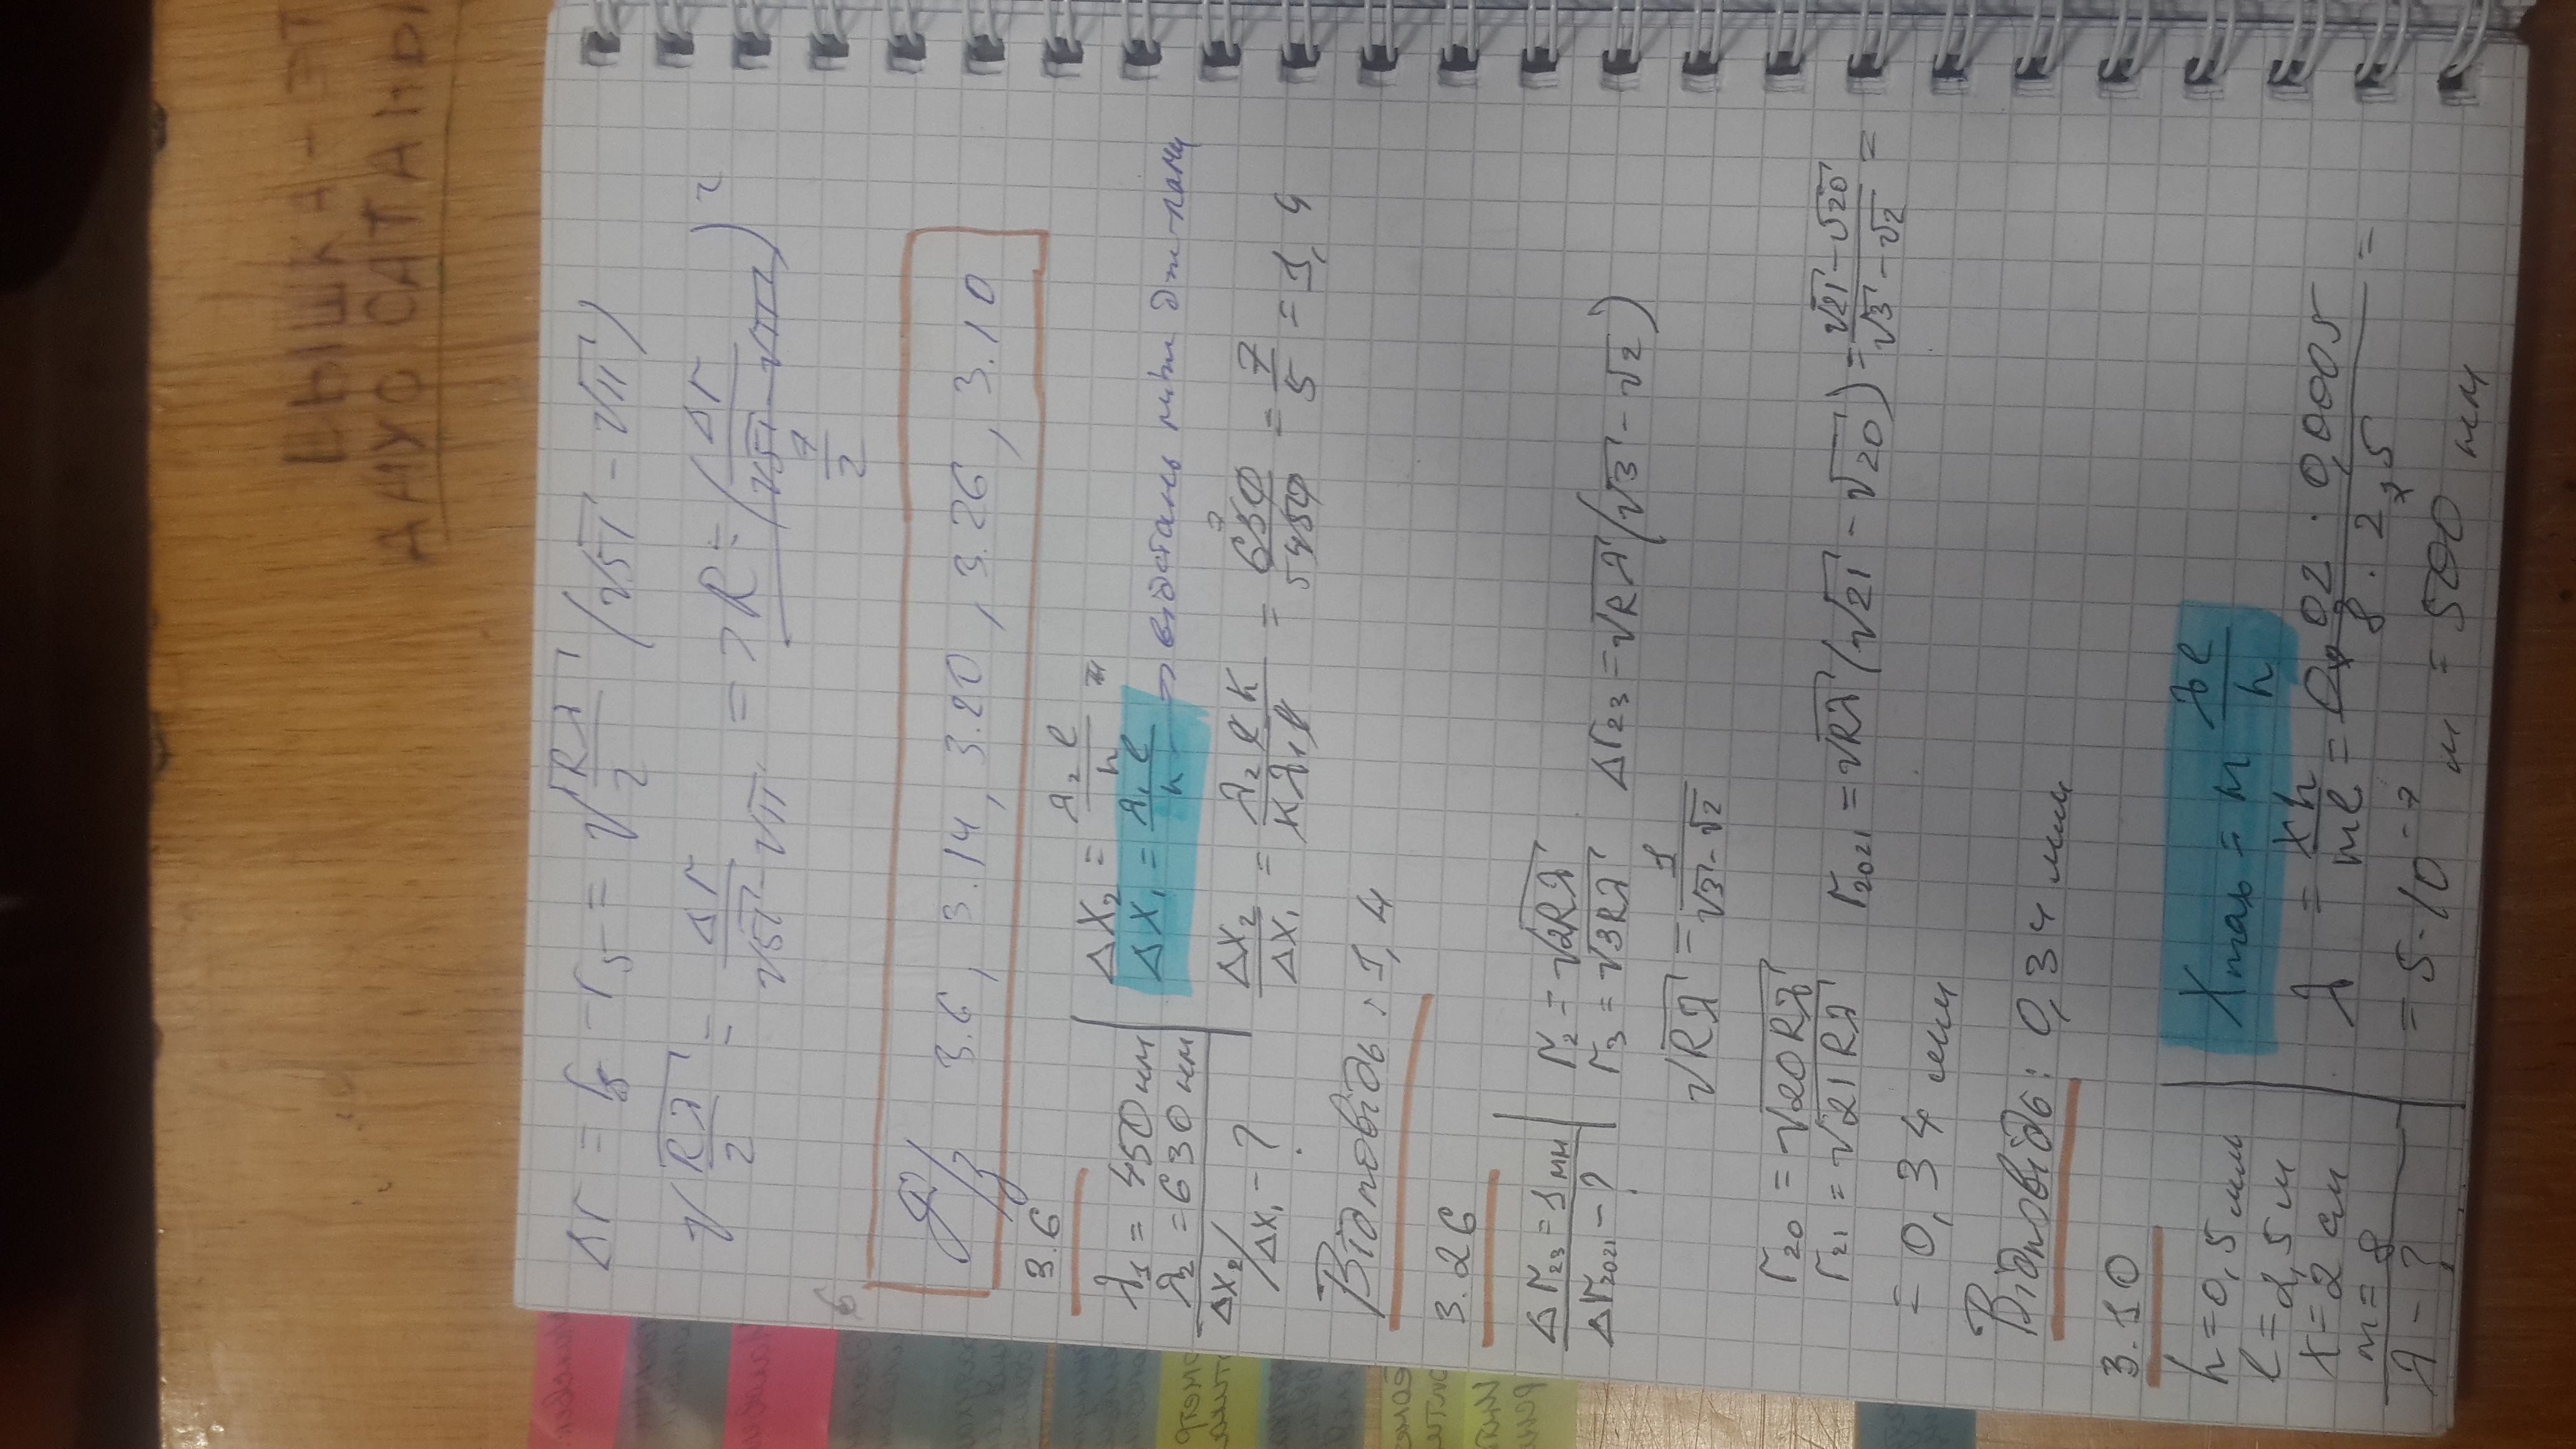 ЦЫШКА - ЭТ
АНУС САТАНЫ
Δr = r₈ - r₅ = √(Rλ/2) (√51 - √11)
√(Rλ/2) = Δr/(√51 - √11) => R = (Δr/(√51 - √11))²
7/2
6
Д/з 3.6, 3.14, 3.20, 3.26, 3.10
3.6
λ₁ = 450 нм
λ₂ = 630 нм
Δx₂/Δx₁ - ?
Δx₂ = λ₂ l / h =
Δx₁ = λ₁ l / h => відстань між дж-лами
Δx₂/Δx₁ = λ₂ l h / h λ₁ l = 630/450 = 7/5 = 1,4
Відповідь: 1,4
3.26
Δr₂₃ = 1 мм
Δr₂₀₂₁ - ?
r₂ = √2Rλ
r₃ = √3Rλ Δr₂₃ = √Rλ (√3 - √2)
√Rλ = 1/(√3 - √2)
r₂₀ = √20Rλ
r₂₁ = √21Rλ r₂₀₂₁ = √Rλ (√21 - √20) = (√21 - √20)/(√3 - √2) =
= 0,34 мм
Відповідь: 0,34 мм
3.10
h = 0,5 мм
l = 2,5 м
x = 2 см
m = 8
λ - ?
Xmax = m λl/h
λ = xh/ml = 0,02 · 0,0005 / 8 · 2,5 =
= 5·10⁻⁷ м = 500 нм